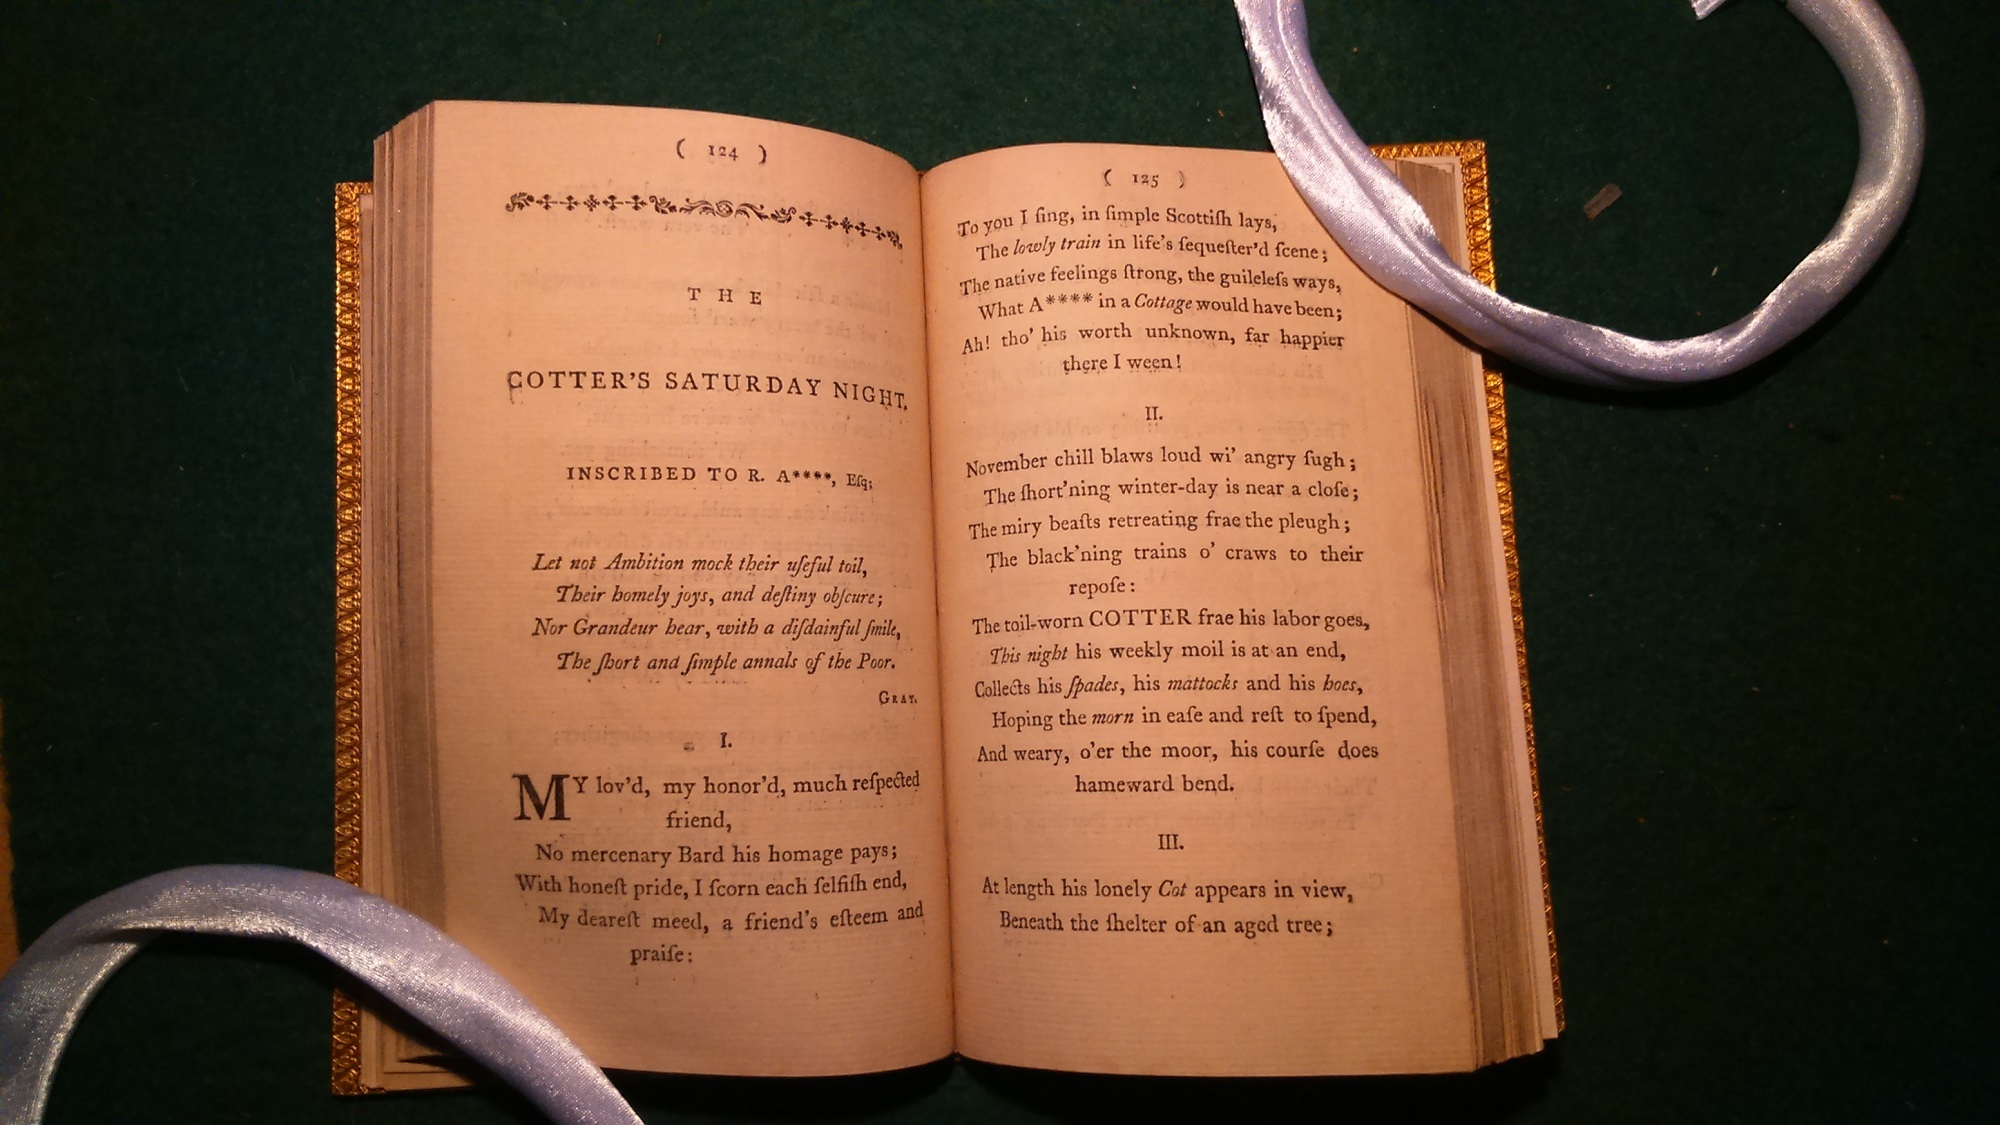 ( 124 )
THE
COTTER'S SATURDAY NIGHT.
INSCRIBED TO R. A****, Eſq;
Let not Ambition mock their uſeful toil,
Their homely joys, and deſtiny obſcure;
Nor Grandeur hear, with a diſdainful ſmile,
The ſhort and ſimple annals of the Poor.
GRAY.
I.
MY lov'd, my honor'd, much reſpected
friend,
No mercenary Bard his homage pays;
With honeſt pride, I ſcorn each ſelfiſh end,
My deareſt meed, a friend's eſteem and
praiſe:
( 125 )
To you I ſing, in ſimple Scottiſh lays,
The lowly train in life's ſequeſter'd ſcene;
The native feelings ſtrong, the guileleſs ways,
What A**** in a Cottage would have been;
Ah! tho' his worth unknown, far happier
there I ween!
II.
November chill blaws loud wi' angry ſugh;
The ſhort'ning winter-day is near a cloſe;
The miry beaſts retreating frae the pleugh;
The black'ning trains o' craws to their
repoſe:
The toil-worn COTTER frae his labor goes,
This night his weekly moil is at an end,
Collects his ſpades, his mattocks and his hoes,
Hoping the morn in eaſe and reſt to ſpend,
And weary, o'er the moor, his courſe does
hameward bend.
III.
At length his lonely Cot appears in view,
Beneath the ſhelter of an aged tree;